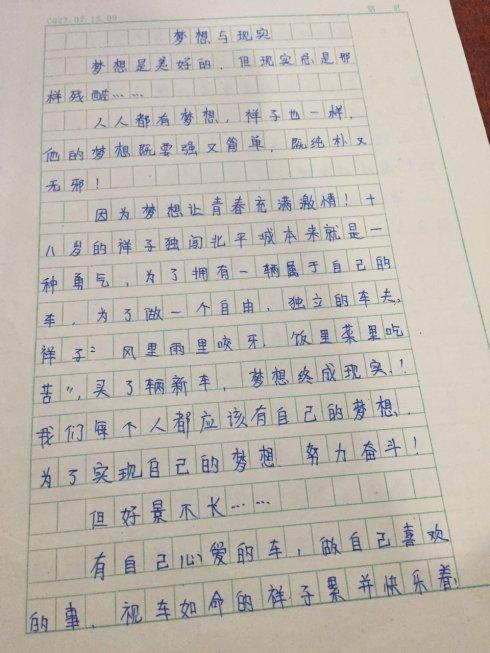 梦想与现实
梦想是美好的，但现实总是那
样残酷……
人人都有梦想，祥子也一样，
他的梦想既要强又简单，既纯朴又
无邪！
因为梦想让青春充满激情！十
八岁的祥子独闯北平城本来就是一
种勇气，为了拥有一辆属于自己的
车，为了做一个自由、独立的车夫，
祥子“风里雨里咬牙，饭里菜里吃
苦”，买了辆新车，梦想终成现实！
我们每个人都应该有自己的梦想，
为了实现自己的梦想努力奋斗！
但好景不长……
有自己心爱的车，做自己喜欢
的事，视车如命的祥子累并快乐着，